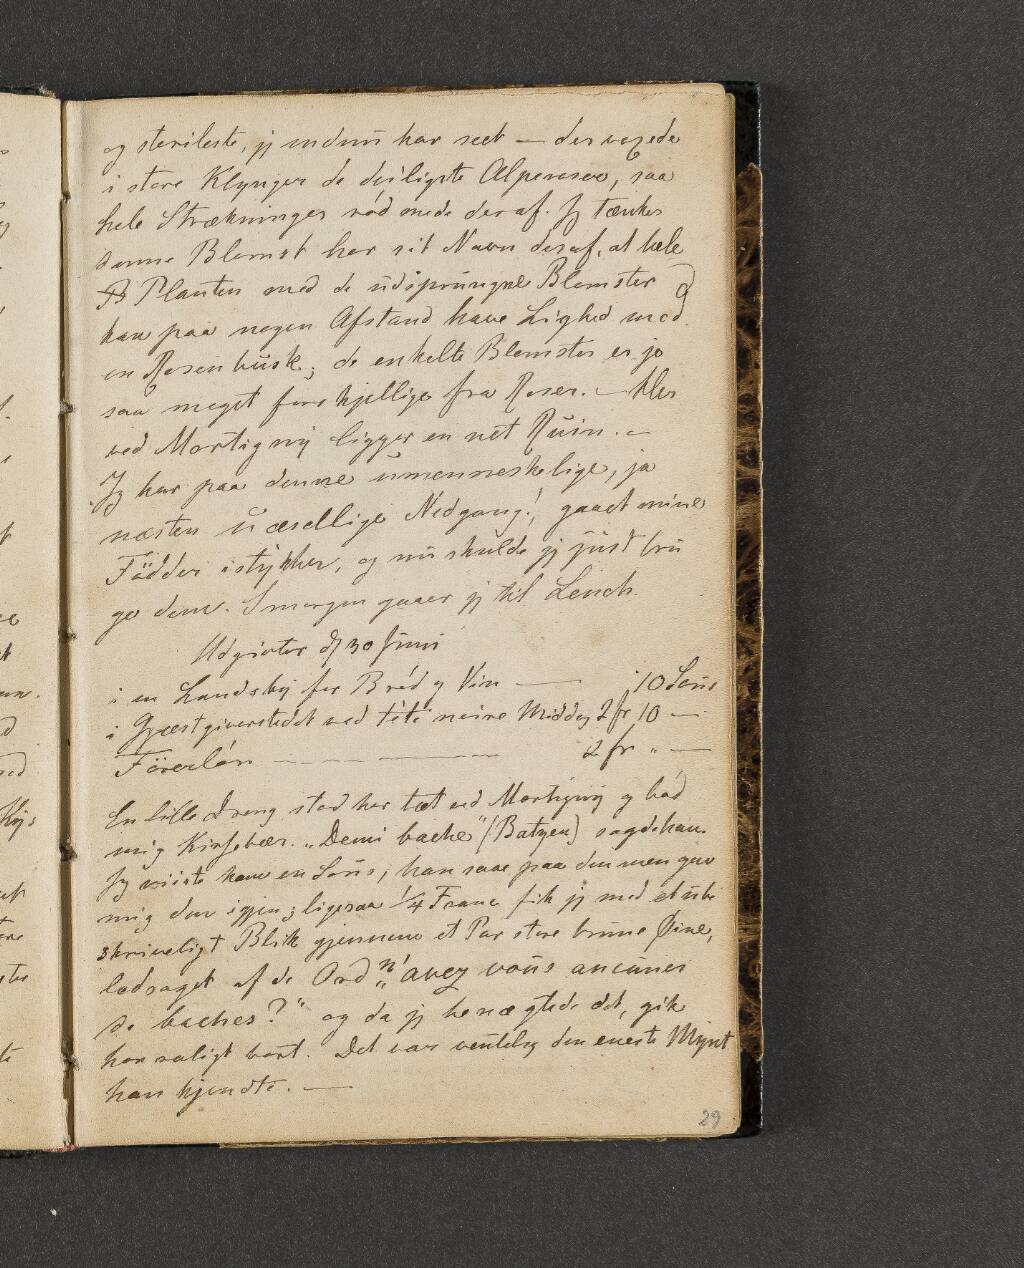 og sterileste, jg endnu har seet — der voxede
i store Klynger de deiligste Alperoser, saa
hele Strækninger rödmede deraf. Jg tænker
denne Blomst har sit Navn deraf, at hele
Planten med de udsprungne Blomster
kan paa nogen Afstand have Lighed med
en Rosenbusk; de enkelte Blomster er jo
saa meget forskjellige fra Roser. — Her
ved Martigny ligger en net Ruin. —
Jg har paa denne umenneskelige, ja
næsten uæsellige Nedgang! gaaet mine
Födder istykker, og nu skulde jg just bru
ge dem. I morgen gaaer jg til Leuch.
Udgivter d 30 Juni
i en Landsby for Bröd og Vin — 10 Sous
i Gjæstgiverstedet ved tête noire Middag 2 fr 10 —
Förerlön — — 2 fr „ —
En lille Dreng stod her tæt ved Martigny og böd
mig Kirsebær. „Demi bache" (Batzen) sagde han.
Jg viiste ham en Sous, han saae paa den men gav
mig den igjen; ligesaa 1/4 Franc fik jg med et ube
skriveligt Blik gjennem et Par store brune Øine,
ledsaget af de Ord „n' avez vous aucunes
de baches?" og da jg benægtede det, gik
han roligt bort. Det var ventelig den eneste Mynt
han kjendte. —
29